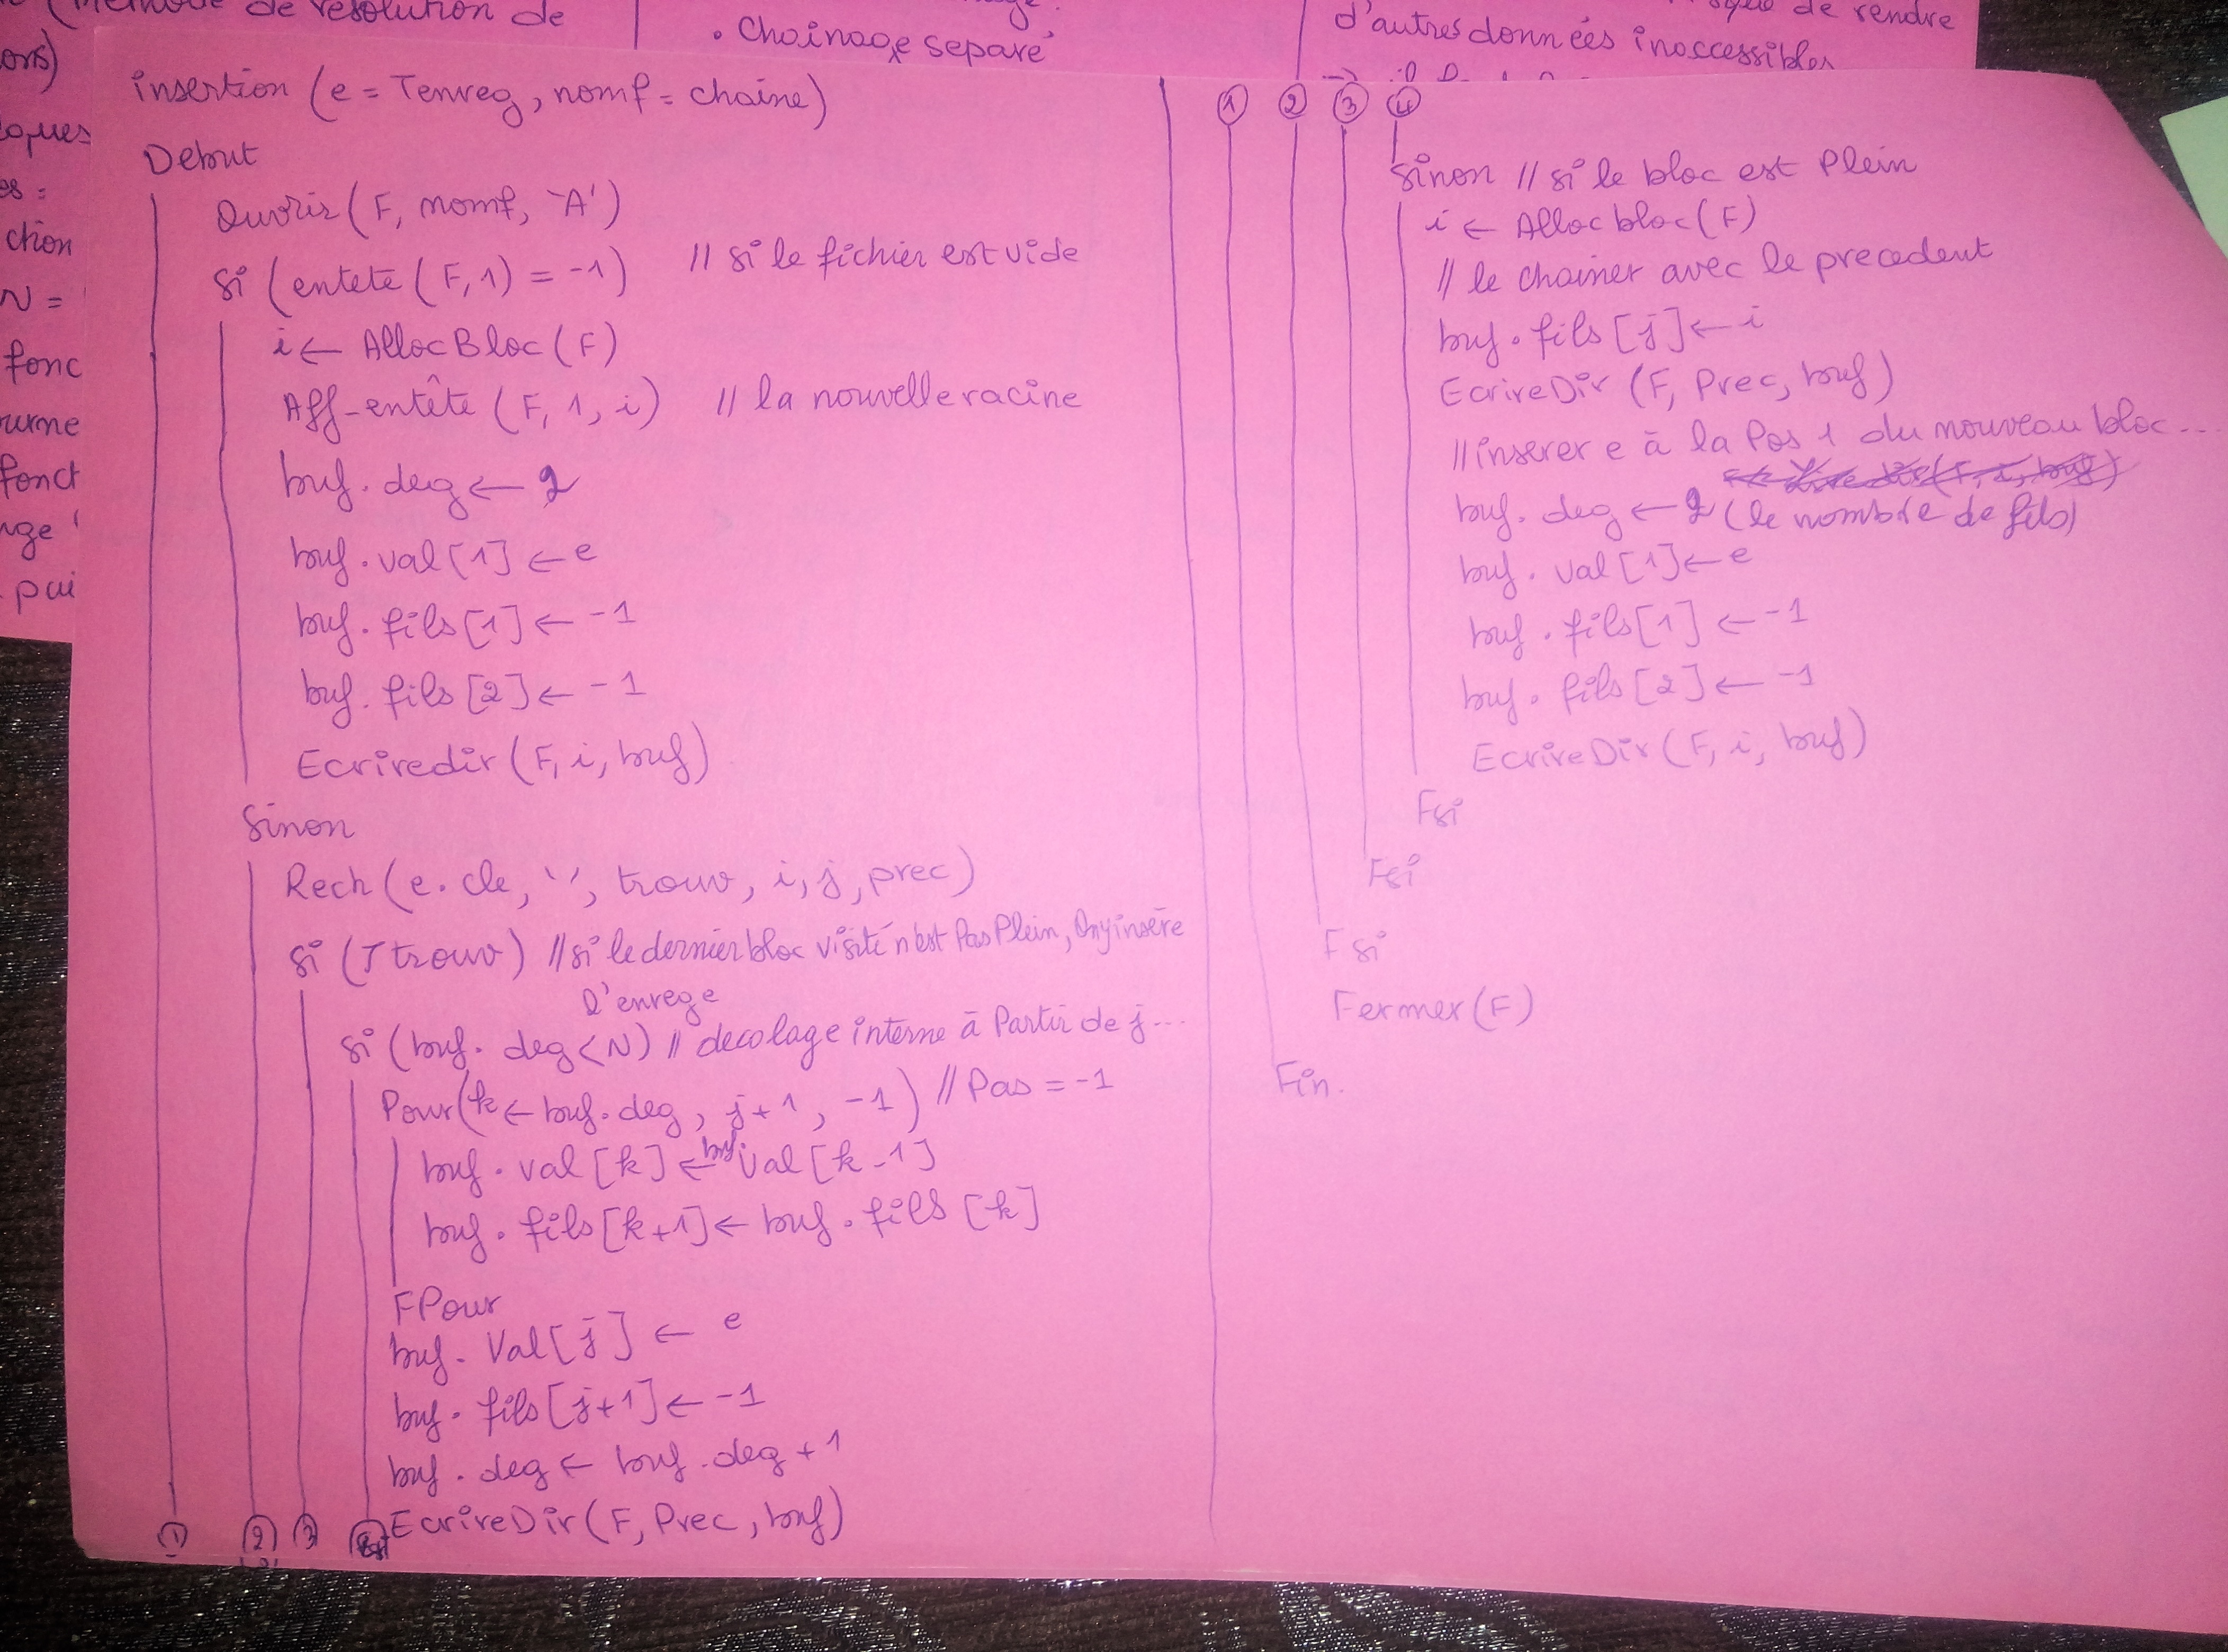 de resolution de
. Chainage separé
de rendre
d'autres données inaccessibles
ons)
ques
ction
N =
fonc
urne
fonct
pui
insertion (e = Tenreg, nomf = chaine)
Debut
Ouvrir (F, nomf, 'A')
Si (entete (F, 1) = -1) // si le fichier est vide
i ← AllocBloc (F)
Aff-entête (F, 1, i) // la nouvelle racine
buf. deg ← 2
buf. val [1] ← e
buf. fils [1] ← -1
buf. fils [2] ← -1
Ecriredir (F, i, buf)
Sinon
Rech (e. cle, '', trouv, i, j, prec)
Si (⌉ trouv) // si le dernier bloc visité n'est Pas Plein, On y insère
l'enreg e
Si (buf. deg < N) // decolage interne à Partir de j...
Pour (k ← buf. deg, j+1, -1) // Pas = -1
buf. val [k] ← buf. Val [k-1]
buf. fils [k+1] ← buf. fils [k]
FPour
buf. Val [j] ← e
buf. fils [j+1] ← -1
buf. deg ← buf. deg + 1
EcrireDir (F, Prec, buf)
1 2 3
1 2 3 4
Sinon // si le bloc est Plein
i ← Alloc bloc (F)
// le chainer avec le precedent
buf. fils [j] ← i
EcrireDir (F, Prec, buf)
// inserer e à la Pos 1 du nouveau bloc...
buf. deg ← 2 (le nombre de fils)
buf. val [1] ← e
buf. fils [1] ← -1
buf. fils [2] ← -1
EcrireDir (F, i, buf)
Fsi
Fsi
Fsi
Fermer (F)
Fin.